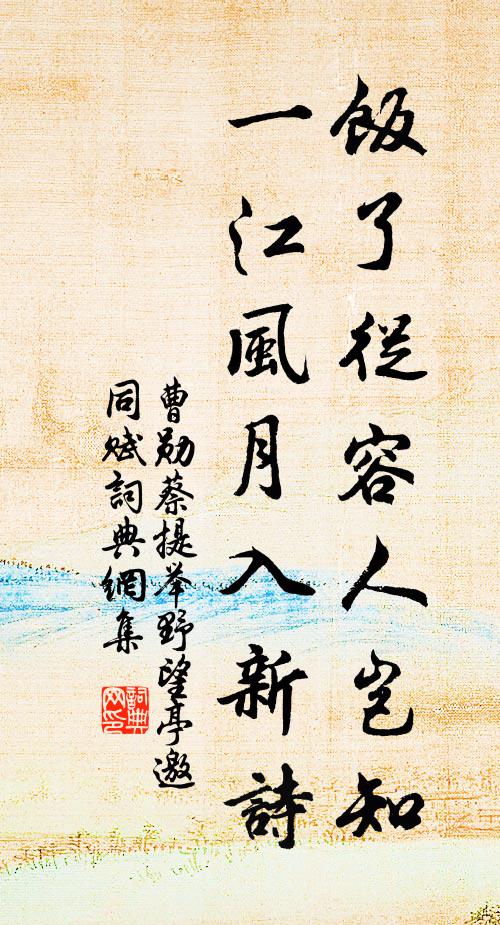 飯了從容人豈知
一江風月入新詩
曹勛蔡提举野望亭邀
同赋詞典網集
詞典
网印